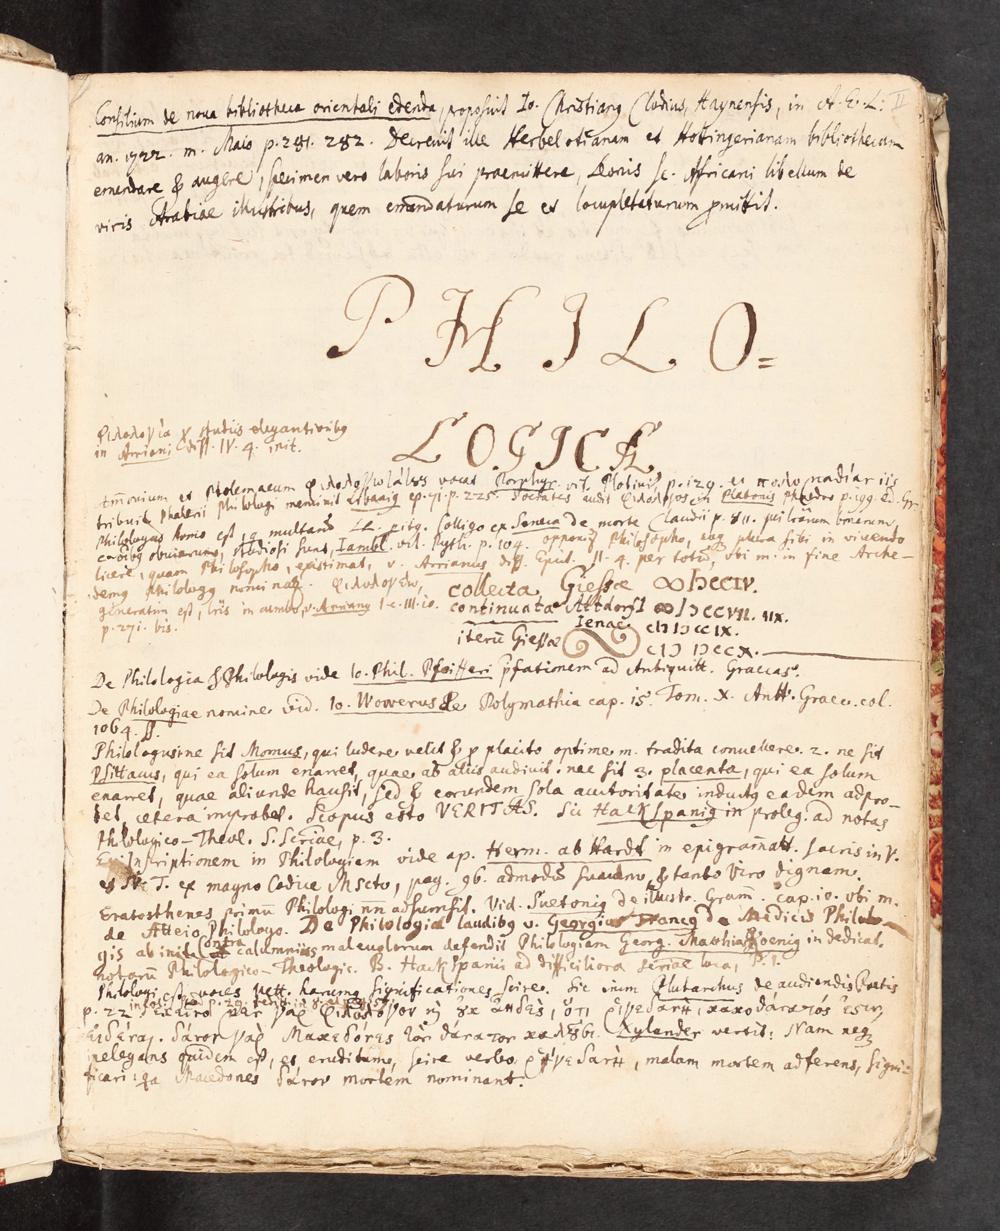 Consilium de noua bibliotheca orientali edenda, proposuit Io. Christiang Clodius, Haynensis, in A. E. L. II
an. 1722. m. Maio p. 281. 282. Decreuit ille Herbelotianam et Hottingerianam bibliothecam
emendare & augere, specimen vero laboris sui praemittere, Leonis sc. Africani libellum de
viris Arabiae illustribus, quem emendaturum se et locupletaturum promittit.
PHILO=
LOGICA
φιλολογία studiis elegantioribg
in Arriani diss. IV. 4. init.
Ammonium et Ptolemaeum vocat Porphyr. vit. Plotini p. 129. et iis
tribuit. Phalerii Philologi meminit ep. 91. p. 225. Socrates audit φιλόλογος in Platonis Phaedro p. 199. ed. Gr.
Philologus homo est, colligo ex Seneca de morte Claudii p. 811.
obviarum, studiosi sunt, Iambl. vit. Pyth. p. 104. opponit Philosopho, plura sibi in vivendo
licere, quam Philosopho, existimat, v. Arrianus diss. Epict. II. 4. per totum, ubi m. in fine Arche-
demg Philologg nominat. φιλολογεῖν
generatim est, v. Arriang l. c. III. 10.
p. 271. bis.
collecta Giessae ∞ IↃCCIV.
continuata Altdorfi ∞ IↃCCVII. IIX.
Ienae CIↃ IↃCCIX.
iterū Giessae CIↃ IↃCCX.
De Philologia & Philologis vide Io. Phil. Pfeifferi pfationem ad Antiquitt. Graecas.
De Philologiae nomine vid. Io. Wowerus de Polymathia cap. 15. Tom. X. Antt. Graec. col.
1064. ss.
Philologusne sit Momus, qui ludere velit & p placito optime m. tradita conuellere. 2. ne sit
Psittacus, qui ea solum enarret, quae ab aliis audiuit. nec sit 3. placenta, qui ea solum
enarret, quae aliunde hausit, sed & eorundem sola auctoritate inductg eadem adpro-
bet, cetera improbet. Scopus esto VERITAS. Sic Hackspanig in proleg. ad notas
Philologico-Theol. S. Scriae, p. 3.
Inscriptionem in Philologiam vide ap. Herm. ab Hardt in epigrammatt. sacris in V.
et N. T. ex magno Codice Mscto, pag. 96. admodū suauem, & tanto Viro dignam.
Eratosthenes primū Philologi nn adsumsit. Vid. Suetonig de illustr. Gram. cap. 10. ubi m.
de Atteio Philologo. De Philologia laudibg v. Georgius Francg de Medicis Philolo-
gis ab init. Contra calumnias maleuolorum defendit Philologiam Georg. Matthias Koenig in dedicat.
notarū Philologico-Theologic. B. Hackspanii ad difficiliora scriae loca, P. I.
Philologi est, voces vett. harumq significationes scire. sic cum Plutarchus de audiendis Poetis
p. 22 Ἐκεῖνο μὲν γὰρ φιλόλογον κ οὐκ ἀηδὲς, ὅτι ῥιγεδανὴ, κακοθάνατός ἐστιν
εἰδέναι. δάνον γὰρ Μακεδόνες τὸν θάνατον καλοῦσι. Xylander vertit: Nam neq
inelegans quidem est, et eruditum, scire verbo ῥιγεδανὴ, malam mortem adferens, signi-
ficari: qa Macedones δάνον mortem nominant.